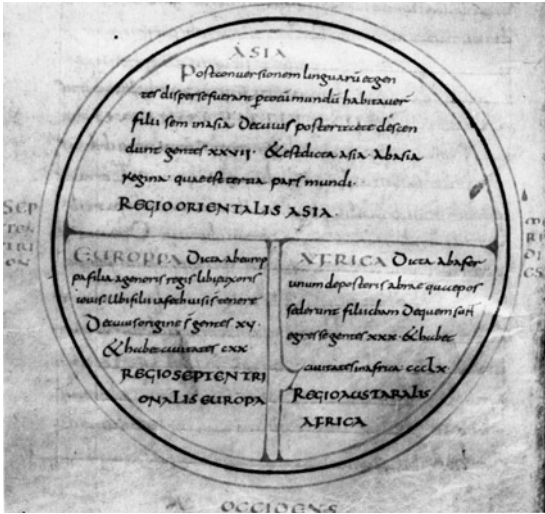 ASIA
Post conversionem linguarū et gen
tes disperse fuerant p totū mundū habitaver̄
filii sem in asia De cuius posteritate descen
dunt gentes xxvii · & est dicta asia ab asia
regina quae est tertia pars mundi
REGIO ORIENTALIS ASIA
SEP
TEN
TRI
ON
EUROPPA Dicta ab europ
pa filia agenoris regis libi uxoris
iouis. Ubi filii iafeth uisi tenere
De cuius origine s̄ gentes xv ·
& habet ciuitates cxx
REGIO SEPTENTRI
ONALIS EUROPA
AFRICA Dicta ab afer
unum de posteris abrae pos
sederunt filii cham De quem
egresse gentes xxx · & habet
ciuitates in africa ccclx ·
REGIO AUSTARALIS
AFRICA
RI
DI
ES
OCCIDENS